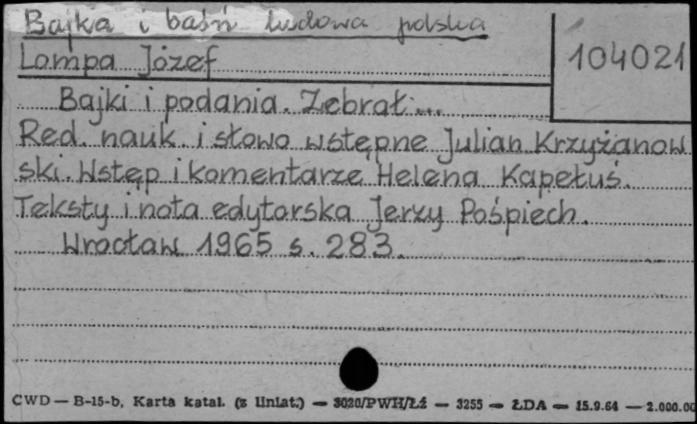 Bajka i baśń ludowa polska
Lompa Józef
104021
Bajki i podania. Zebrał...
Red. nauk. i słowo wstępne Julian Krzyżanow
ski. Wstęp i komentarze Helena Kapełuś.
Teksty i nota edytorska Jerzy Pośpiech.
Wrocław 1965 s. 283.
CWD — B-15-b, Karta katal. (z liniat.) — 3020/PWH/Łź — 3255 — ŁDA — 15.9.64 — 2.000.00